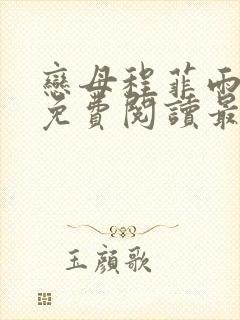 戀母程菲雨
免費閱讀最
玉顏歌